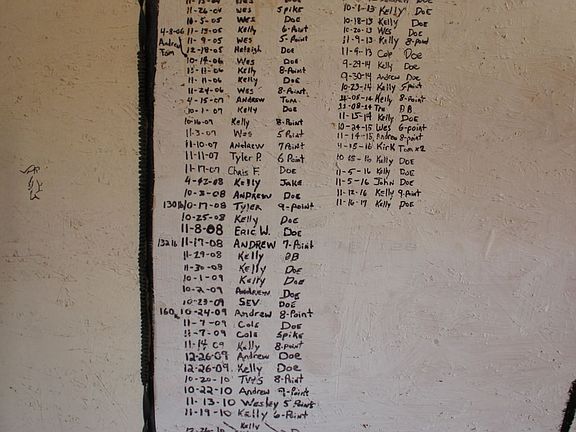 11-26-04 Wes Spike
11-5-05 Wes Doe
4-8-06 11-13-05 Kelly 6-Point
Andrew 11-9-05 Wes 5-Point
Tom 12-18-05 Doe
10-14-06 Wes Doe
11-11-06 Kelly 8-Point
11-11-06 Kelly Doe
11-24-06 Wes 8-Point
4-15-07 Andrew Tom
10-1-07 Kelly Doe
10-16-07 Kelly 8-Point
11-3-07 Wes 5 Point
11-10-07 Andrew 7 Point
11-11-07 Tyler P. 6 Point
11-17-07 Chris F. Doe
4-12-08 Kelly Jake
10-3-08 Andrew Doe
130lb 10-17-08 Tyler 9-Point
10-25-08 Kelly Doe
11-8-08 Eric W. Doe
132lb 11-17-08 Andrew 7-Point
11-29-08 Kelly BB
11-30-08 Kelly Doe
10-1-09 Kelly Doe
10-2-09 Andrew Doe
10-23-09 Sev Doe
160lb 10-24-09 Andrew 8-Point
11-7-09 Cole Doe
11-7-09 Cole Spike
11-14 09 Kelly 8-Point
12-26-09 Andrew Doe
12-26-09. Kelly Doe
10-20-10 8-Point
10-22-10 Andrew 9-Point
11-13-10 Wesley 5 Point
11-19-10 Kelly 6-Point
Kelly
10-1-13 Kelly Doe
10-18-13 Kelly Doe
10-20-13 Wes Doe
11-9-13 Kelly 8-Point
11-9-13 Cole Doe
9-29-14 Kelly Doe
9-30-14 Andrew Doe
10-23-14 Kelly 5 Point
11-05-14 Kelly 8-Point
11-08-14 Tre BB
11-15-14 Kelly Doe
10-24-15 Wes 6-point
11-14-15 Andrew 8-Point
4-15-16 Kirk Tom x2
10-15-16 Kelly Doe
11-5-16 Kelly Doe
11-5-16 John Doe
11-12-16 Kelly 9-Point
11-16-17 Kelly Doe